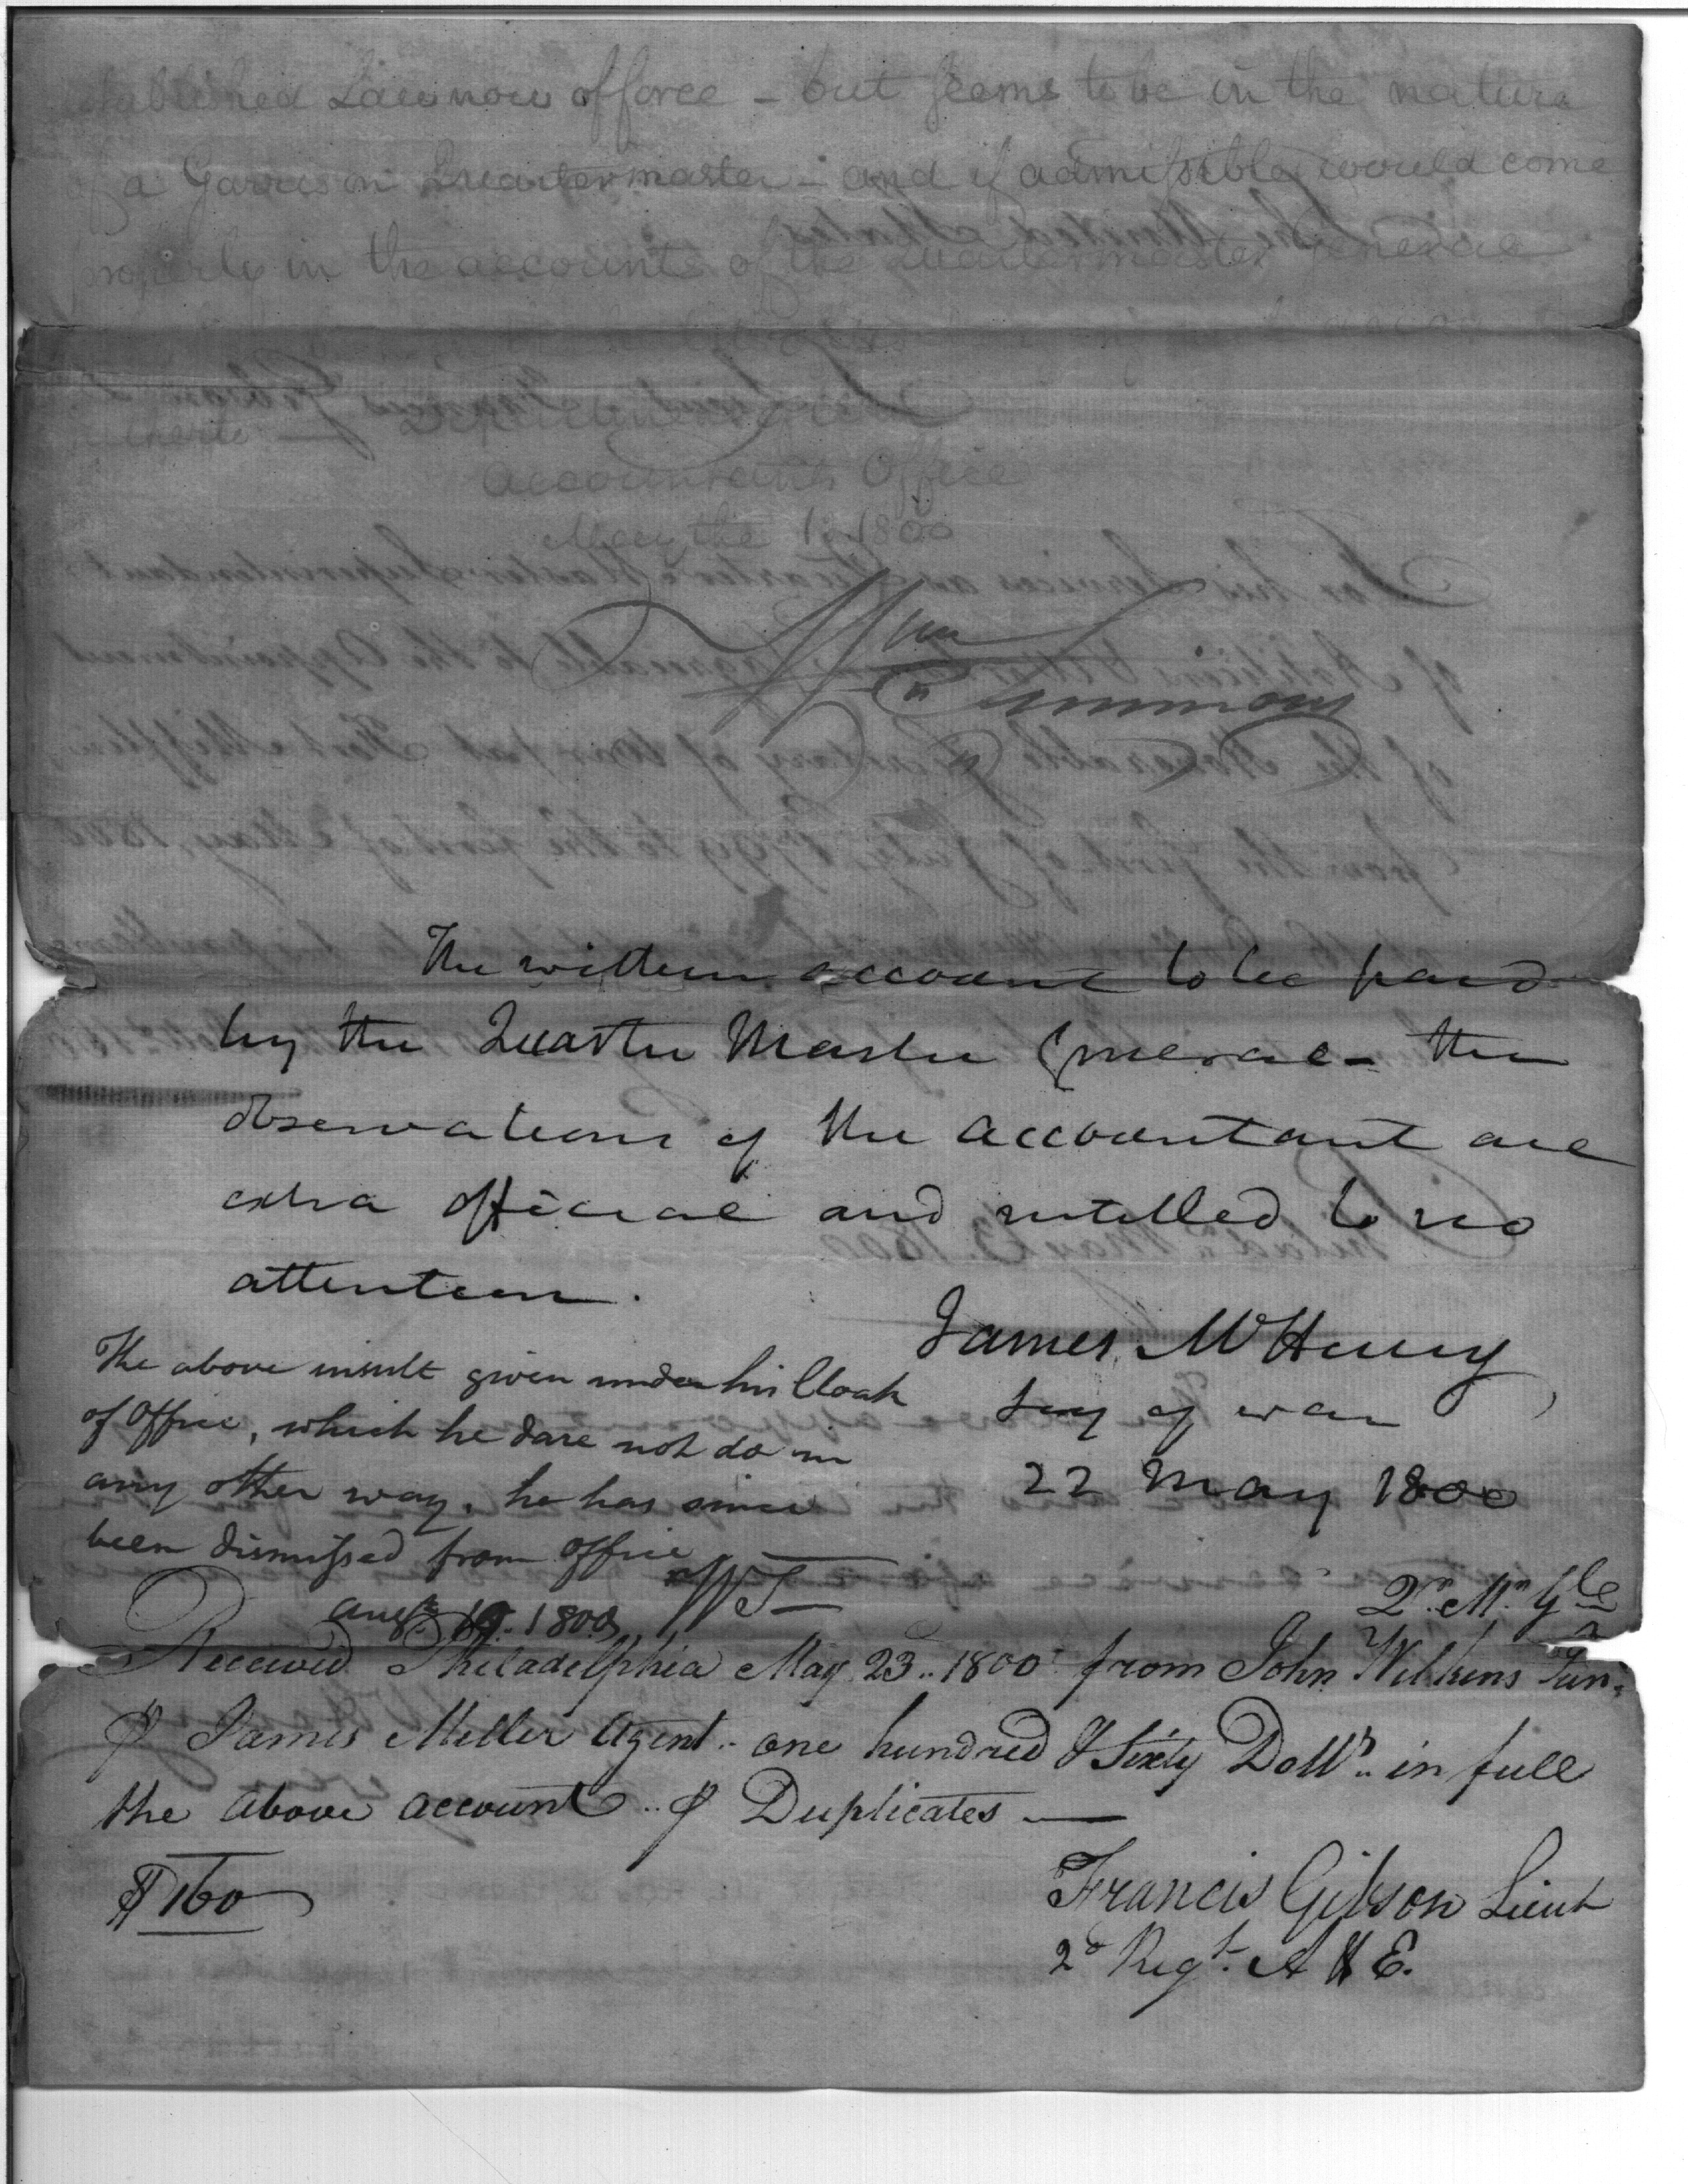 established Law now of force - but seems to be in the nature
of a Garrison Quartermaster - and if admissible would come
properly in the accounts of the Quartermaster General
Department of War
Accountants Office
May the 13 1800
Wm Simmons
The within account to be paid
by the Quarter Master General - the
observations of the accountant are
extra official and intitled to no
attention.
James McHenry
Secy of war
22 May 1800
The above insult given under his Cloak
of Office, which he dare not do in
any other way. he has since
been dismissed from office
WS
Augt 1800
Qr. Mr. Gl
Received Philadelphia May 23.. 1800 from John Wilkins Jun.
⅌ James Miller Agent.. one hundred & Sixty Dolls.. in full
the above account.. ⅌ Duplicates —
$160
Francis Gibson Lieut
2d Regt. A & E.